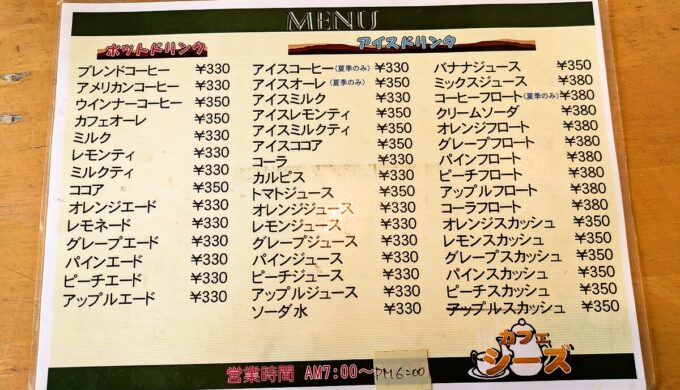 MENU
ホットドリンク
ブレンドコーヒー ¥330
アメリカンコーヒー ¥330
ウインナーコーヒー ¥350
カフェオーレ ¥350
ミルク ¥330
レモンティ ¥330
ミルクティ ¥330
ココア ¥350
オレンジエード ¥330
レモネード ¥330
グレープエード ¥330
パインエード ¥330
ピーチエード ¥330
アップルエード ¥330
アイスドリンク
アイスコーヒー(夏季のみ) ¥330
アイスオーレ(夏季のみ) ¥350
アイスミルク ¥330
アイスレモンティ ¥350
アイスミルクティ ¥350
アイスココア ¥350
コーラ ¥330
カルピス ¥330
トマトジュース ¥350
オレンジジュース ¥330
レモンジュース ¥330
グレープジュース ¥330
パインジュース ¥330
ピーチジュース ¥330
アップルジュース ¥330
ソーダ水 ¥330
バナナジュース ¥350
ミックスジュース ¥380
コーヒーフロート(夏季のみ) ¥380
クリームソーダ ¥380
オレンジフロート ¥380
グレープフロート ¥380
パインフロート ¥380
ピーチフロート ¥380
アップルフロート ¥380
コーラフロート ¥380
オレンジスカッシュ ¥350
レモンスカッシュ ¥350
グレープスカッシュ ¥350
パインスカッシュ ¥350
ピーチスカッシュ ¥350
アップルスカッシュ ¥350
カフェ
シーズ
営業時間 AM7:00〜PM6:00